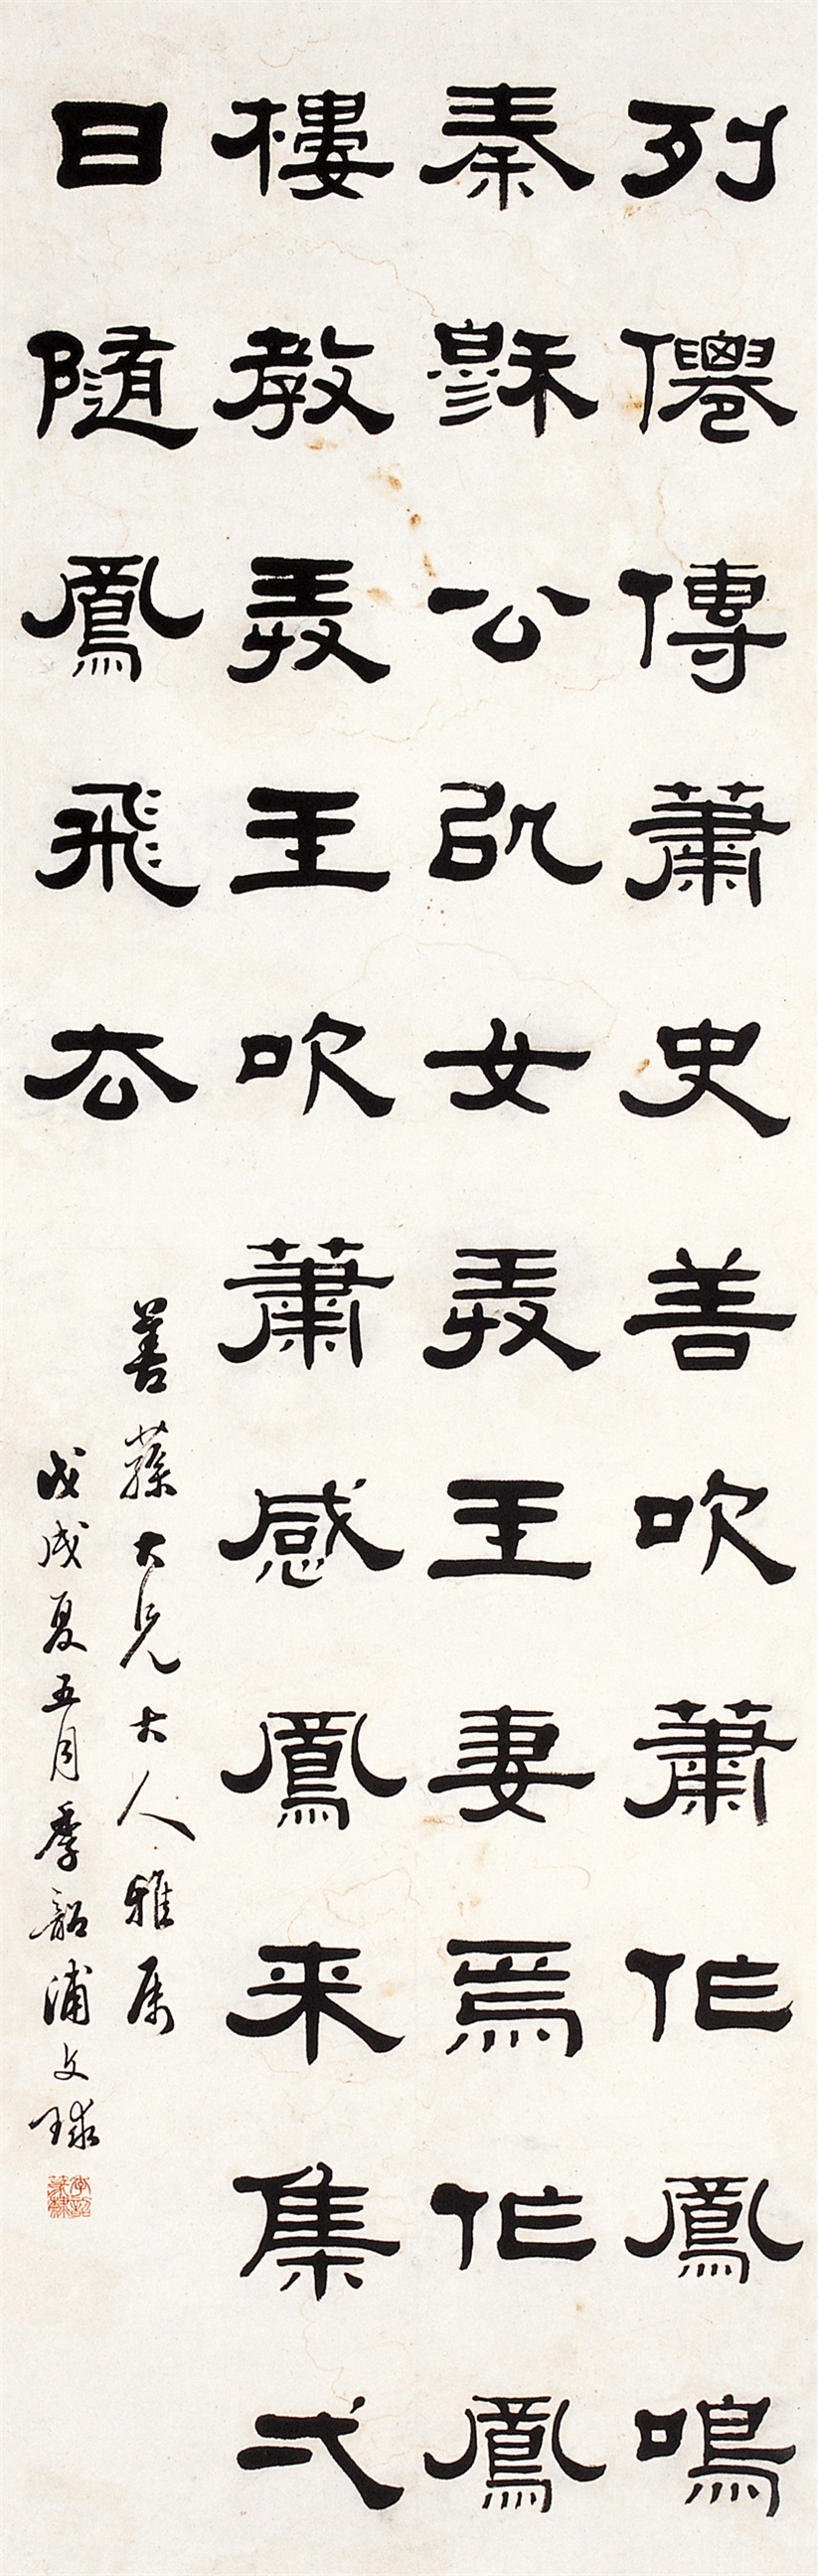 列僊傳蕭史善吹蕭作鳳鳴
秦穆公以女弄玉妻焉作鳳
樓教弄玉吹蕭感鳳来集弌
日隨鳳飛去
善蓀大兄大人雅属
戊戌夏五月季韶浦文球